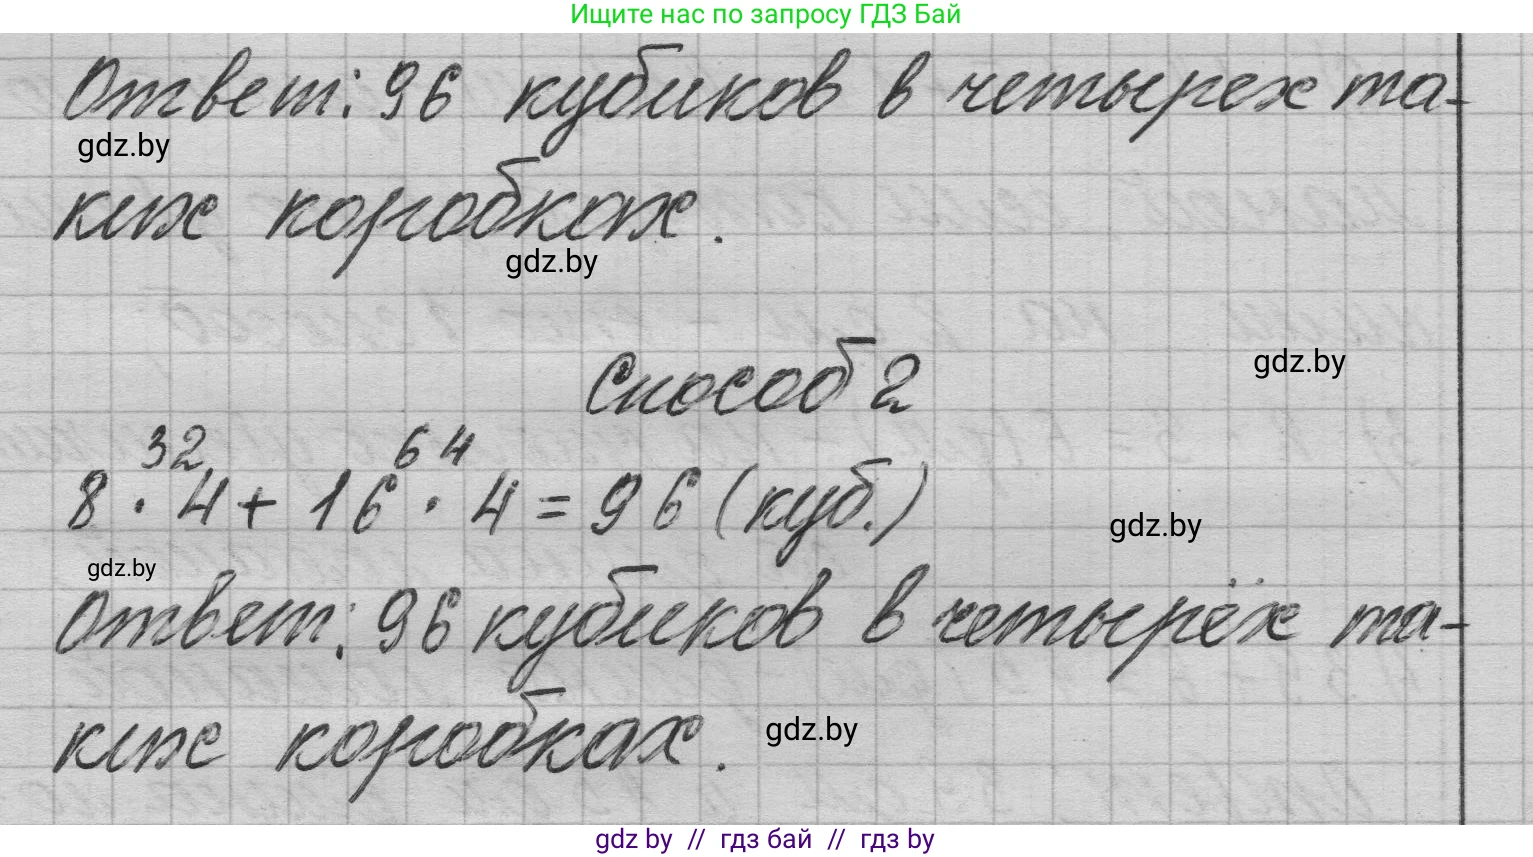 Ищите нас по запросу ГДЗ Бай
Ответ: 96 кубиков в четырех та-
gdz.by
ких коробках.
gdz.by
Способ 2
gdz.by
32 64
8 · 4 + 16 · 4 = 96 (куб.)
gdz.by
gdz.by
Ответ: 96 кубиков в четырёх та-
ких коробках.
gdz.by
gdz by // гдз бай // гдз by